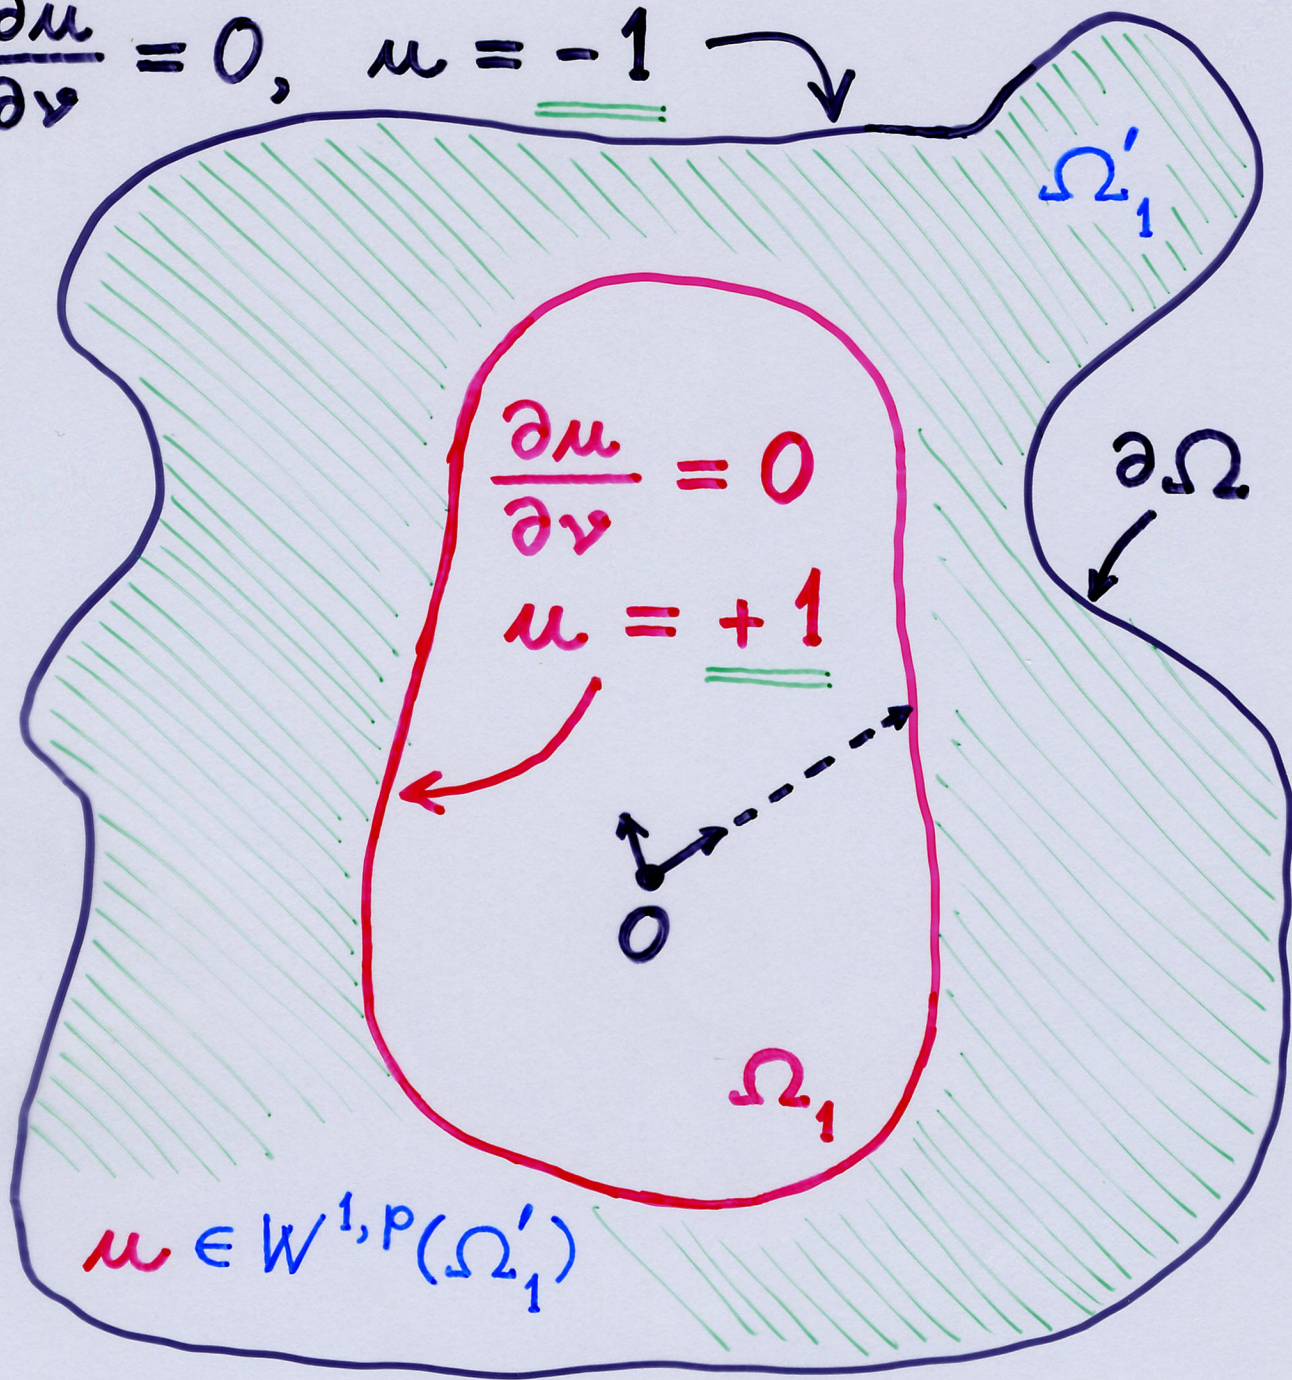 ∂u/∂ν = 0, u = - 1
Ω'₁
∂u/∂ν = 0
∂Ω
u = + 1
O
Ω₁
u ∈ W^{1,p}(Ω'₁)